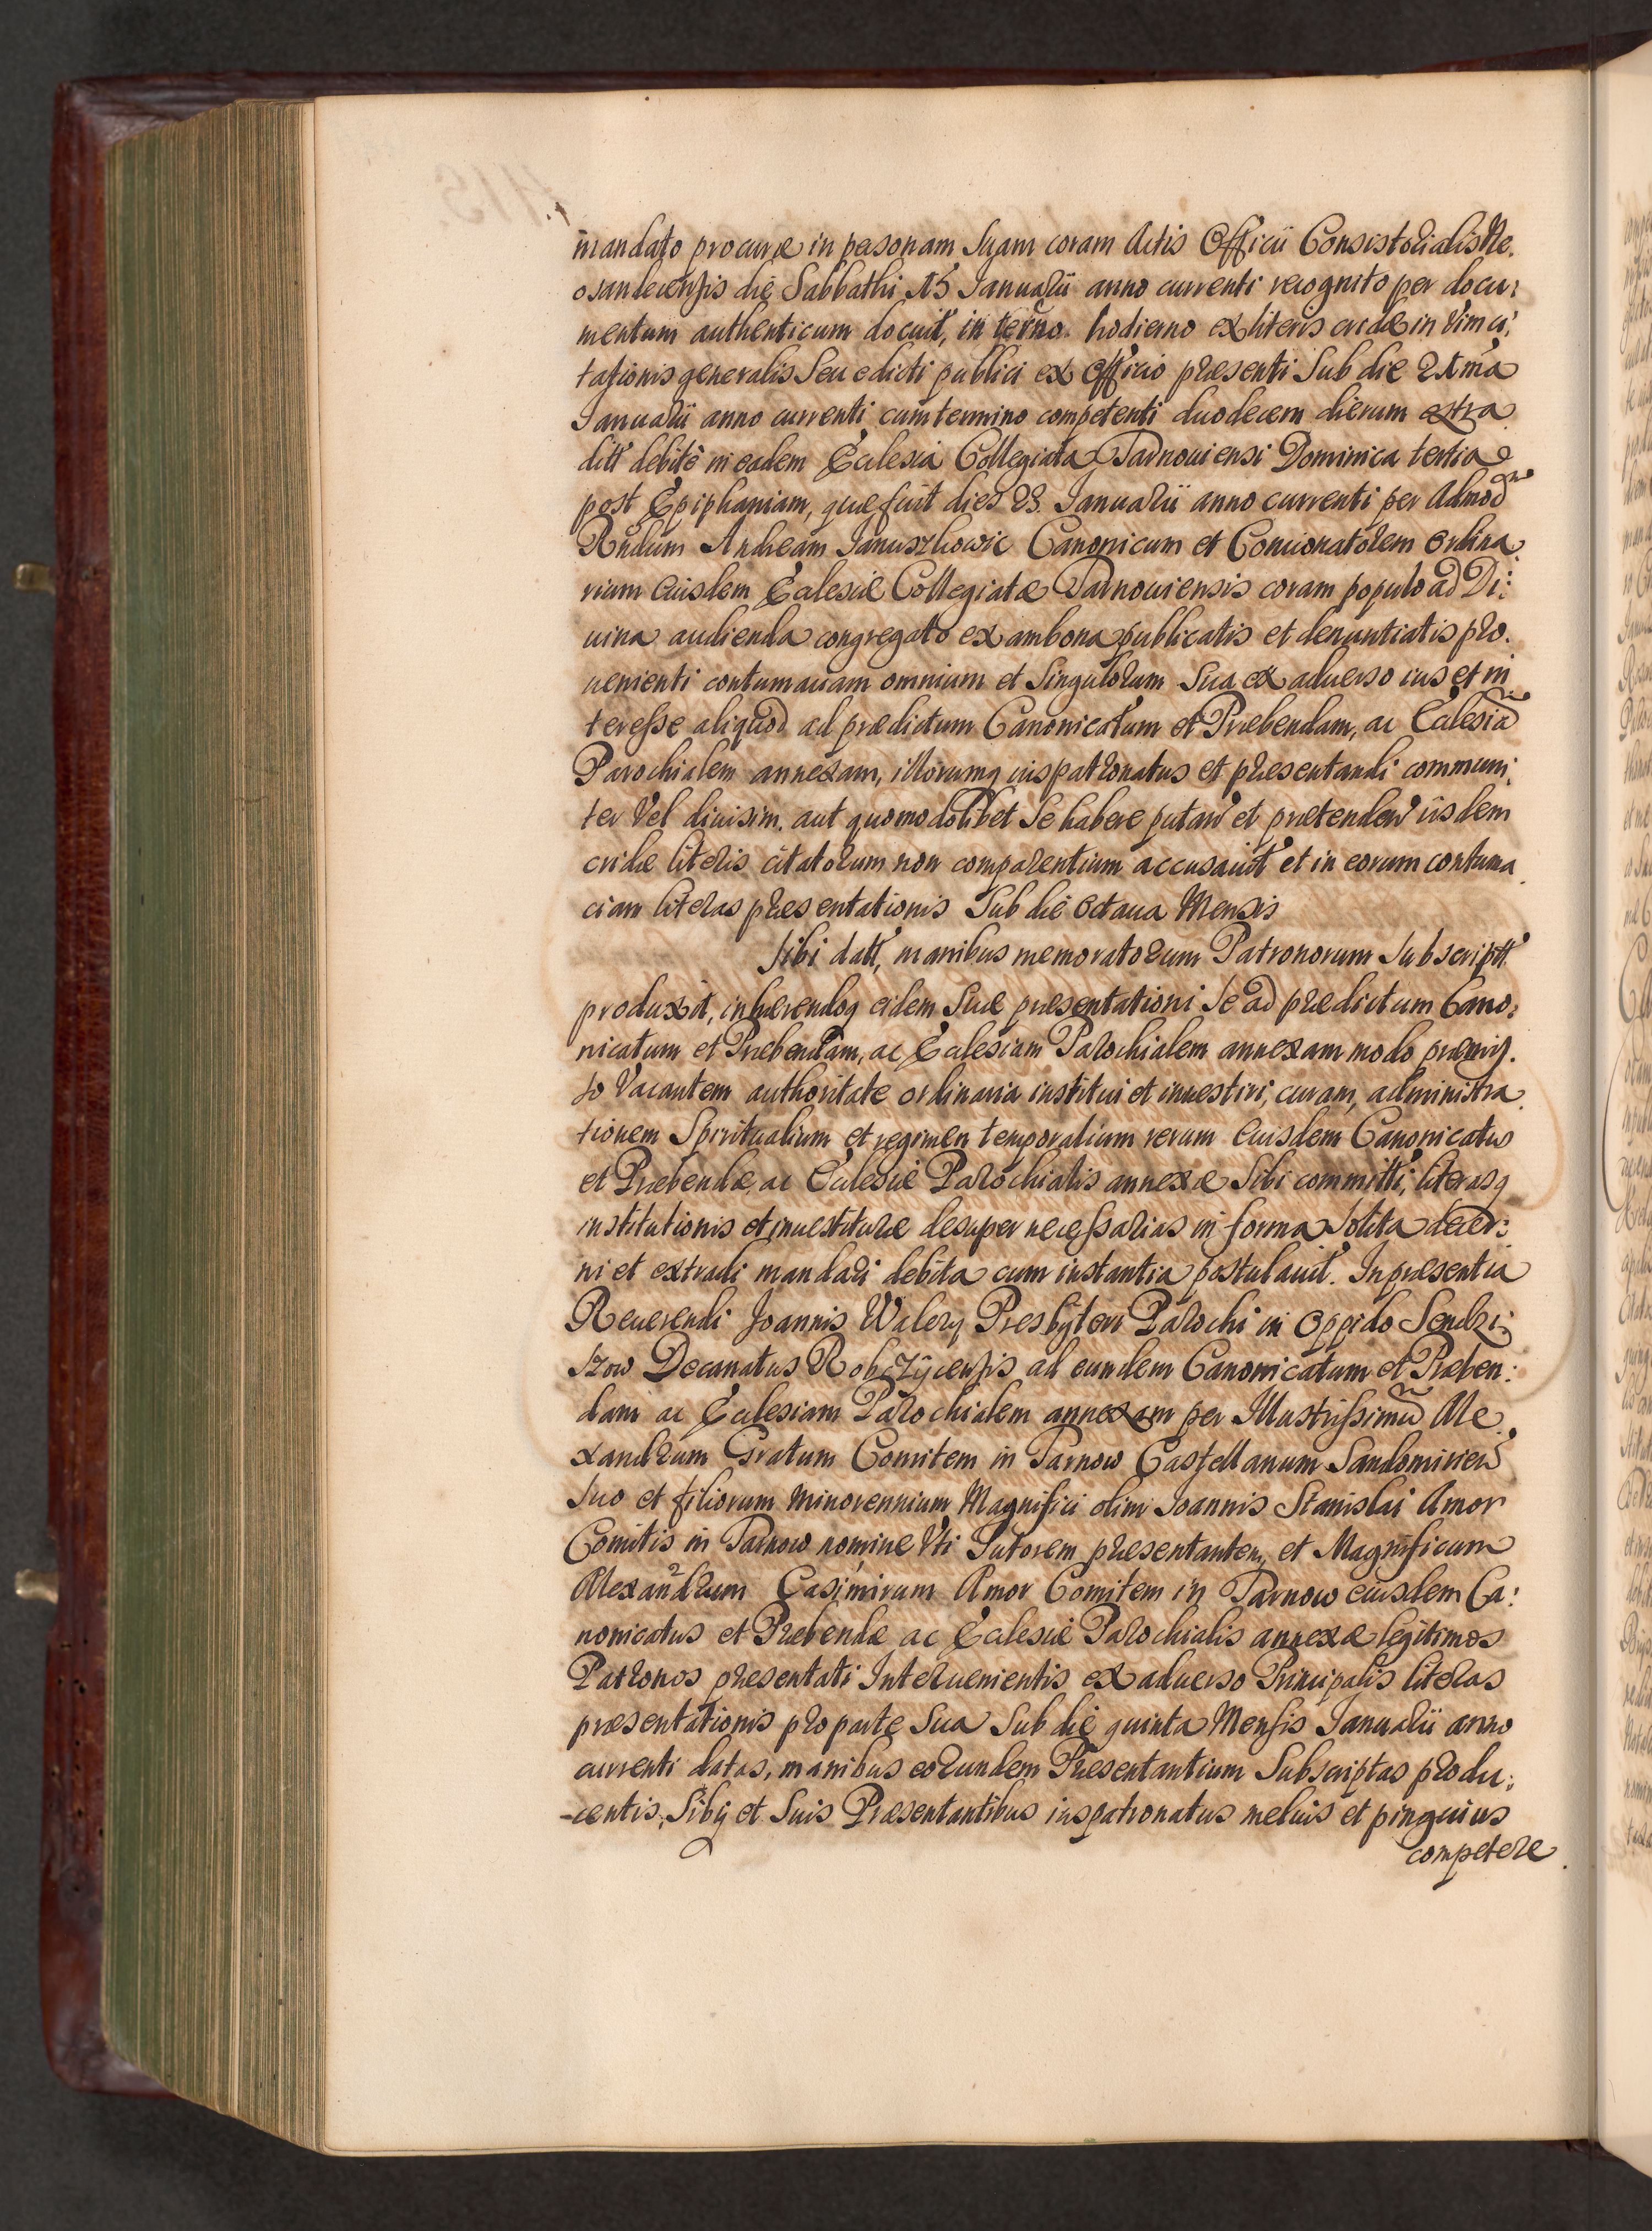 mandato procuræ in personam Suam coram Actis Officii Consistorialis Ne.
osandecensis die Sabbathi 15 Ianuarii anno currenti recognito per docu:
mentum authenticum docuit, in terno hodierno ex literis cridæ in Vim ci:
tationis generalis Seu edicti publici ex Officio præsenti Sub die 21ma
Ianuarii anno currenti cum termino competenti duodecem dierum extra
ditt debitè in eadem Ecclesia Collegiata Tarnouiensi Dominica tertia
post Epiphaniam, quæ fuit dies 23. Ianuarii anno currenti per Admod
Rndum Andream Ianuszkowic Canonicum et Concionatorem Ordina
rium Eiusdem Ecclesiæ Collegiatæ Tarnouiensis coram populo ad Di:
uina audienda congregato ex ambona publicatis et denuntiatis pro.
uenienti contumaciam omnium et Singulorum Sua ex aduerso ius et in
teresse aliquod ad prædictum Canonicatum et Præbendam, ac Ecclesiã
Parochialem annexam, illorumq ius patronatus et præsentandi communi
ter Vel diuisim. aut quomodolibet Se habere putan et prætenden iisdem
cridæ literis citatorum non comparentium accusauit et in eorum contuma
ciam literas præsentationis Sub die Octaua Mensis
Sibi datt, manibus memoratorum Patronorum Subscriptt
produxit, inhærendoq eidem Suæ præsentationi Se ad prædictum Cano:
nicatum et Præbendam, ac Ecclesiam Parochialem annexam modo præmis.
so Vacantem authoritate ordinaria institui et inuestiri, curam, administra
tionem Spiritualium et regimen temporalium rerum Eiusdem Canonicatus
et Præbendæ, ac Ecclesiæ Parochialis annexæ Sibi committi, literasq
institutionis et inuestituræ desuper necessarias in forma Solita decer:
ni et extradi mandari debita cum instantia postulauit. In præsentia
Reuerendi Joannis Walery Presbyteri Parochi in Oppido Sendzi:
szow Decanatus Robczycensis ad eundem Canonicatum et Præben:
dam ac Ecclesiam Parochialem annexam per Illustrissimũ Ale
xandrum Gratum Comitem in Tarnow Castellanum Sandomirien
Suo et filiorum minorennium Magnifici olim Ioannis Stanislai Amor
Comitis in Tarnow nomine Vti Tutorem præsentantem, et Magnificum
Alexandrum Casimirum Amor Comitem in Tarnow eiusdem Ca:
nonicatus et Præbendæ ac Ecclesiæ Parochialis annexæ legitimos
Patronos præsentati Interuenientis ex aduerso Principalis literas
præsentationis pro parte Sua Sub die quinta Mensis Ianuarii anno
currenti datas, manibus eorundem Præsentantium Subscriptas produ:
-centis, Sibiq et Suis Præsentantibus ius patronatus melius et pinguius
competere